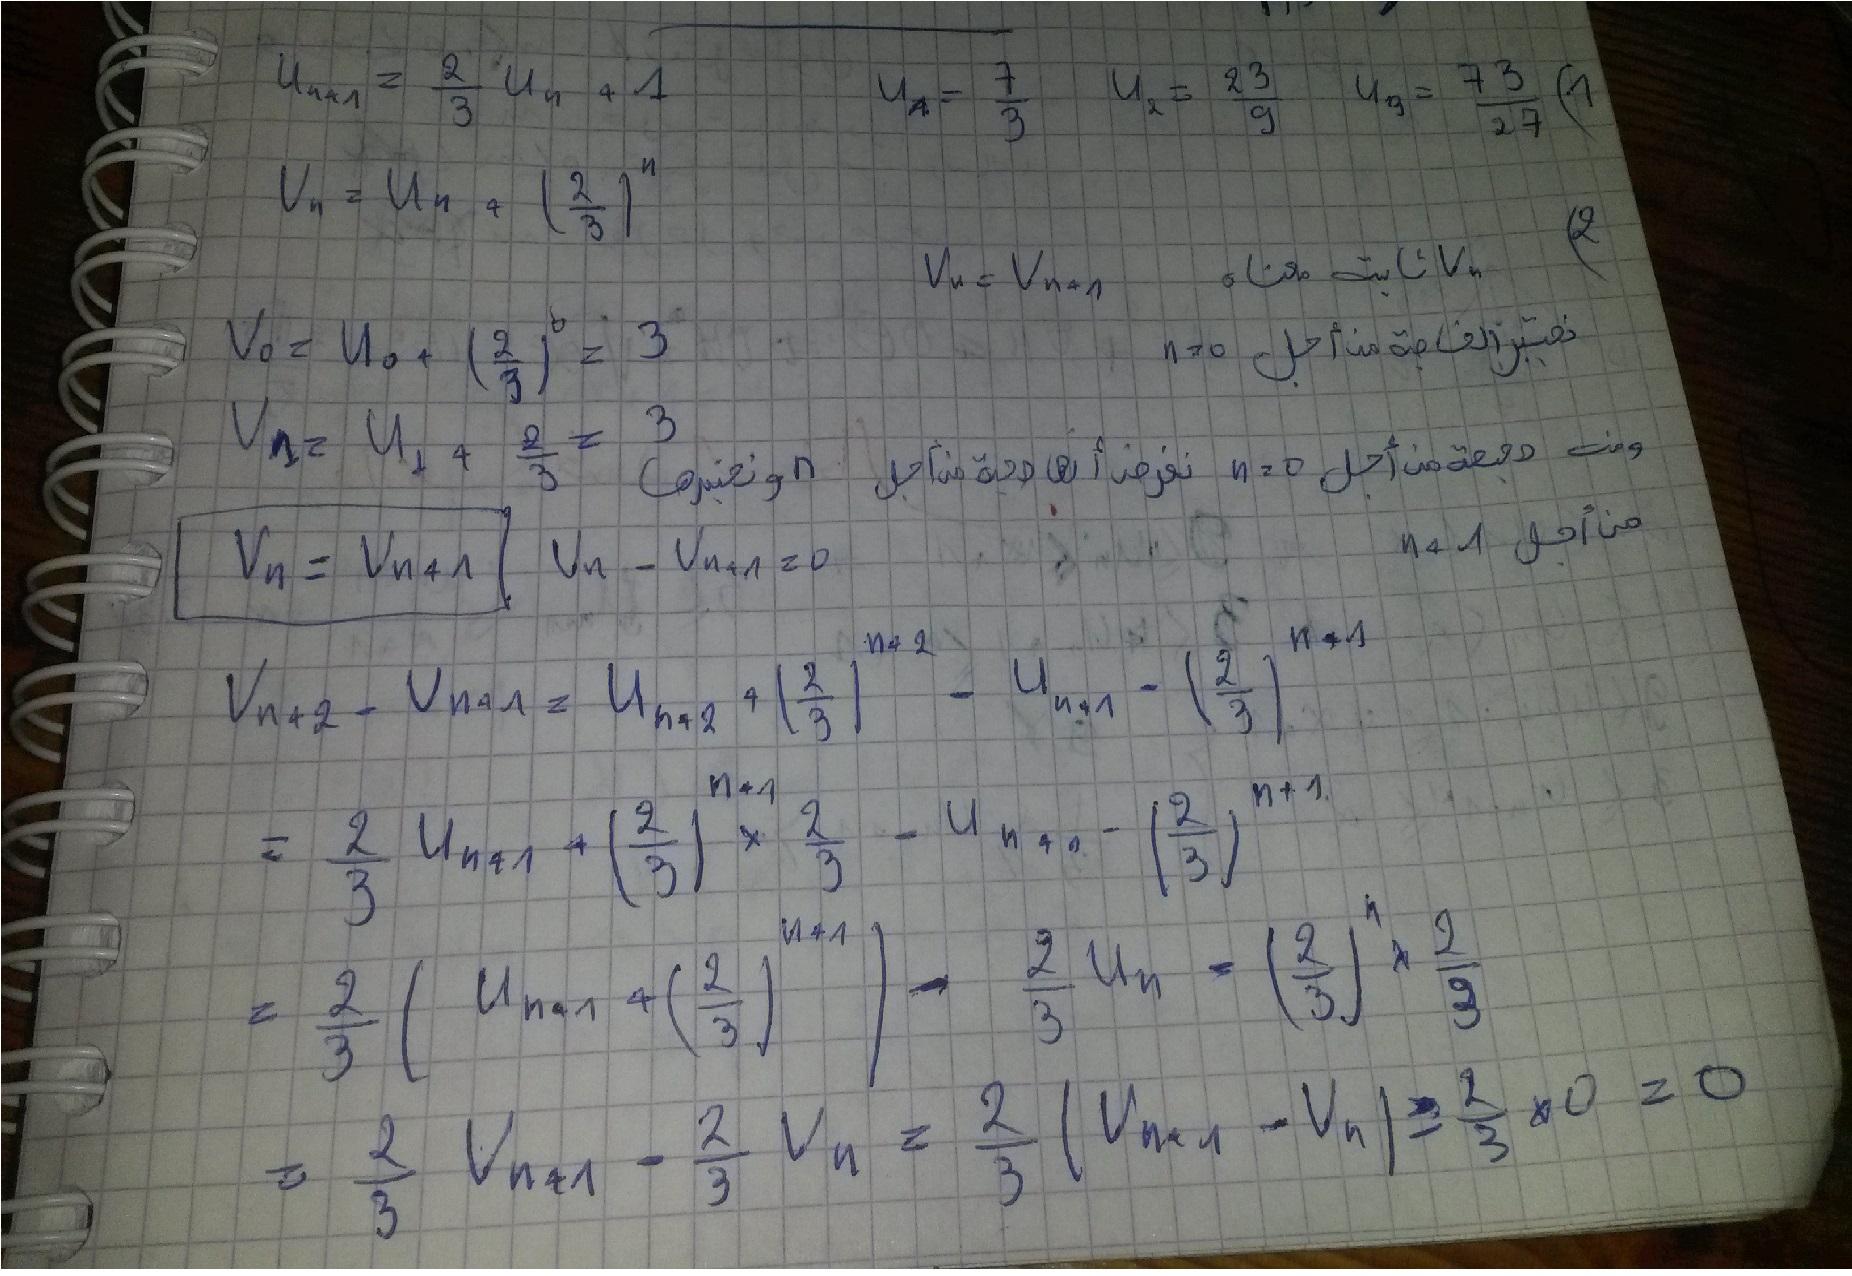 u_{n+1} = \frac{2}{3} u_n + 1    u_1 = \frac{7}{3}    u_2 = \frac{23}{9}    u_3 = \frac{73}{27} (1
V_n = u_n + (\frac{2}{3})^n
(2
V_n ثابت معناه V_n = V_{n+1}
نختبر الخاصة من أجل n=0
V_0 = u_0 + (\frac{2}{3})^0 = 3
V_1 = u_1 + \frac{2}{3} = 3
ومنه صحيحة من أجل n=0 نفرض أنها صحيحة من أجل n ونختبرها
من أجل n+1
V_n = V_{n+1}    V_n - V_{n+1} = 0
V_{n+2} - V_{n+1} = u_{n+2} + (\frac{2}{3})^{n+2} - u_{n+1} - (\frac{2}{3})^{n+1}
= \frac{2}{3} u_{n+1} + (\frac{2}{3})^{n+1} × \frac{2}{3} - u_{n+1} - (\frac{2}{3})^{n+1}
= \frac{2}{3} ( u_{n+1} + (\frac{2}{3})^{n+1} ) - \frac{2}{3} u_n - (\frac{2}{3})^n × \frac{2}{3}
= \frac{2}{3} V_{n+1} - \frac{2}{3} V_n = \frac{2}{3} ( V_{n+1} - V_n ) = \frac{2}{3} × 0 = 0